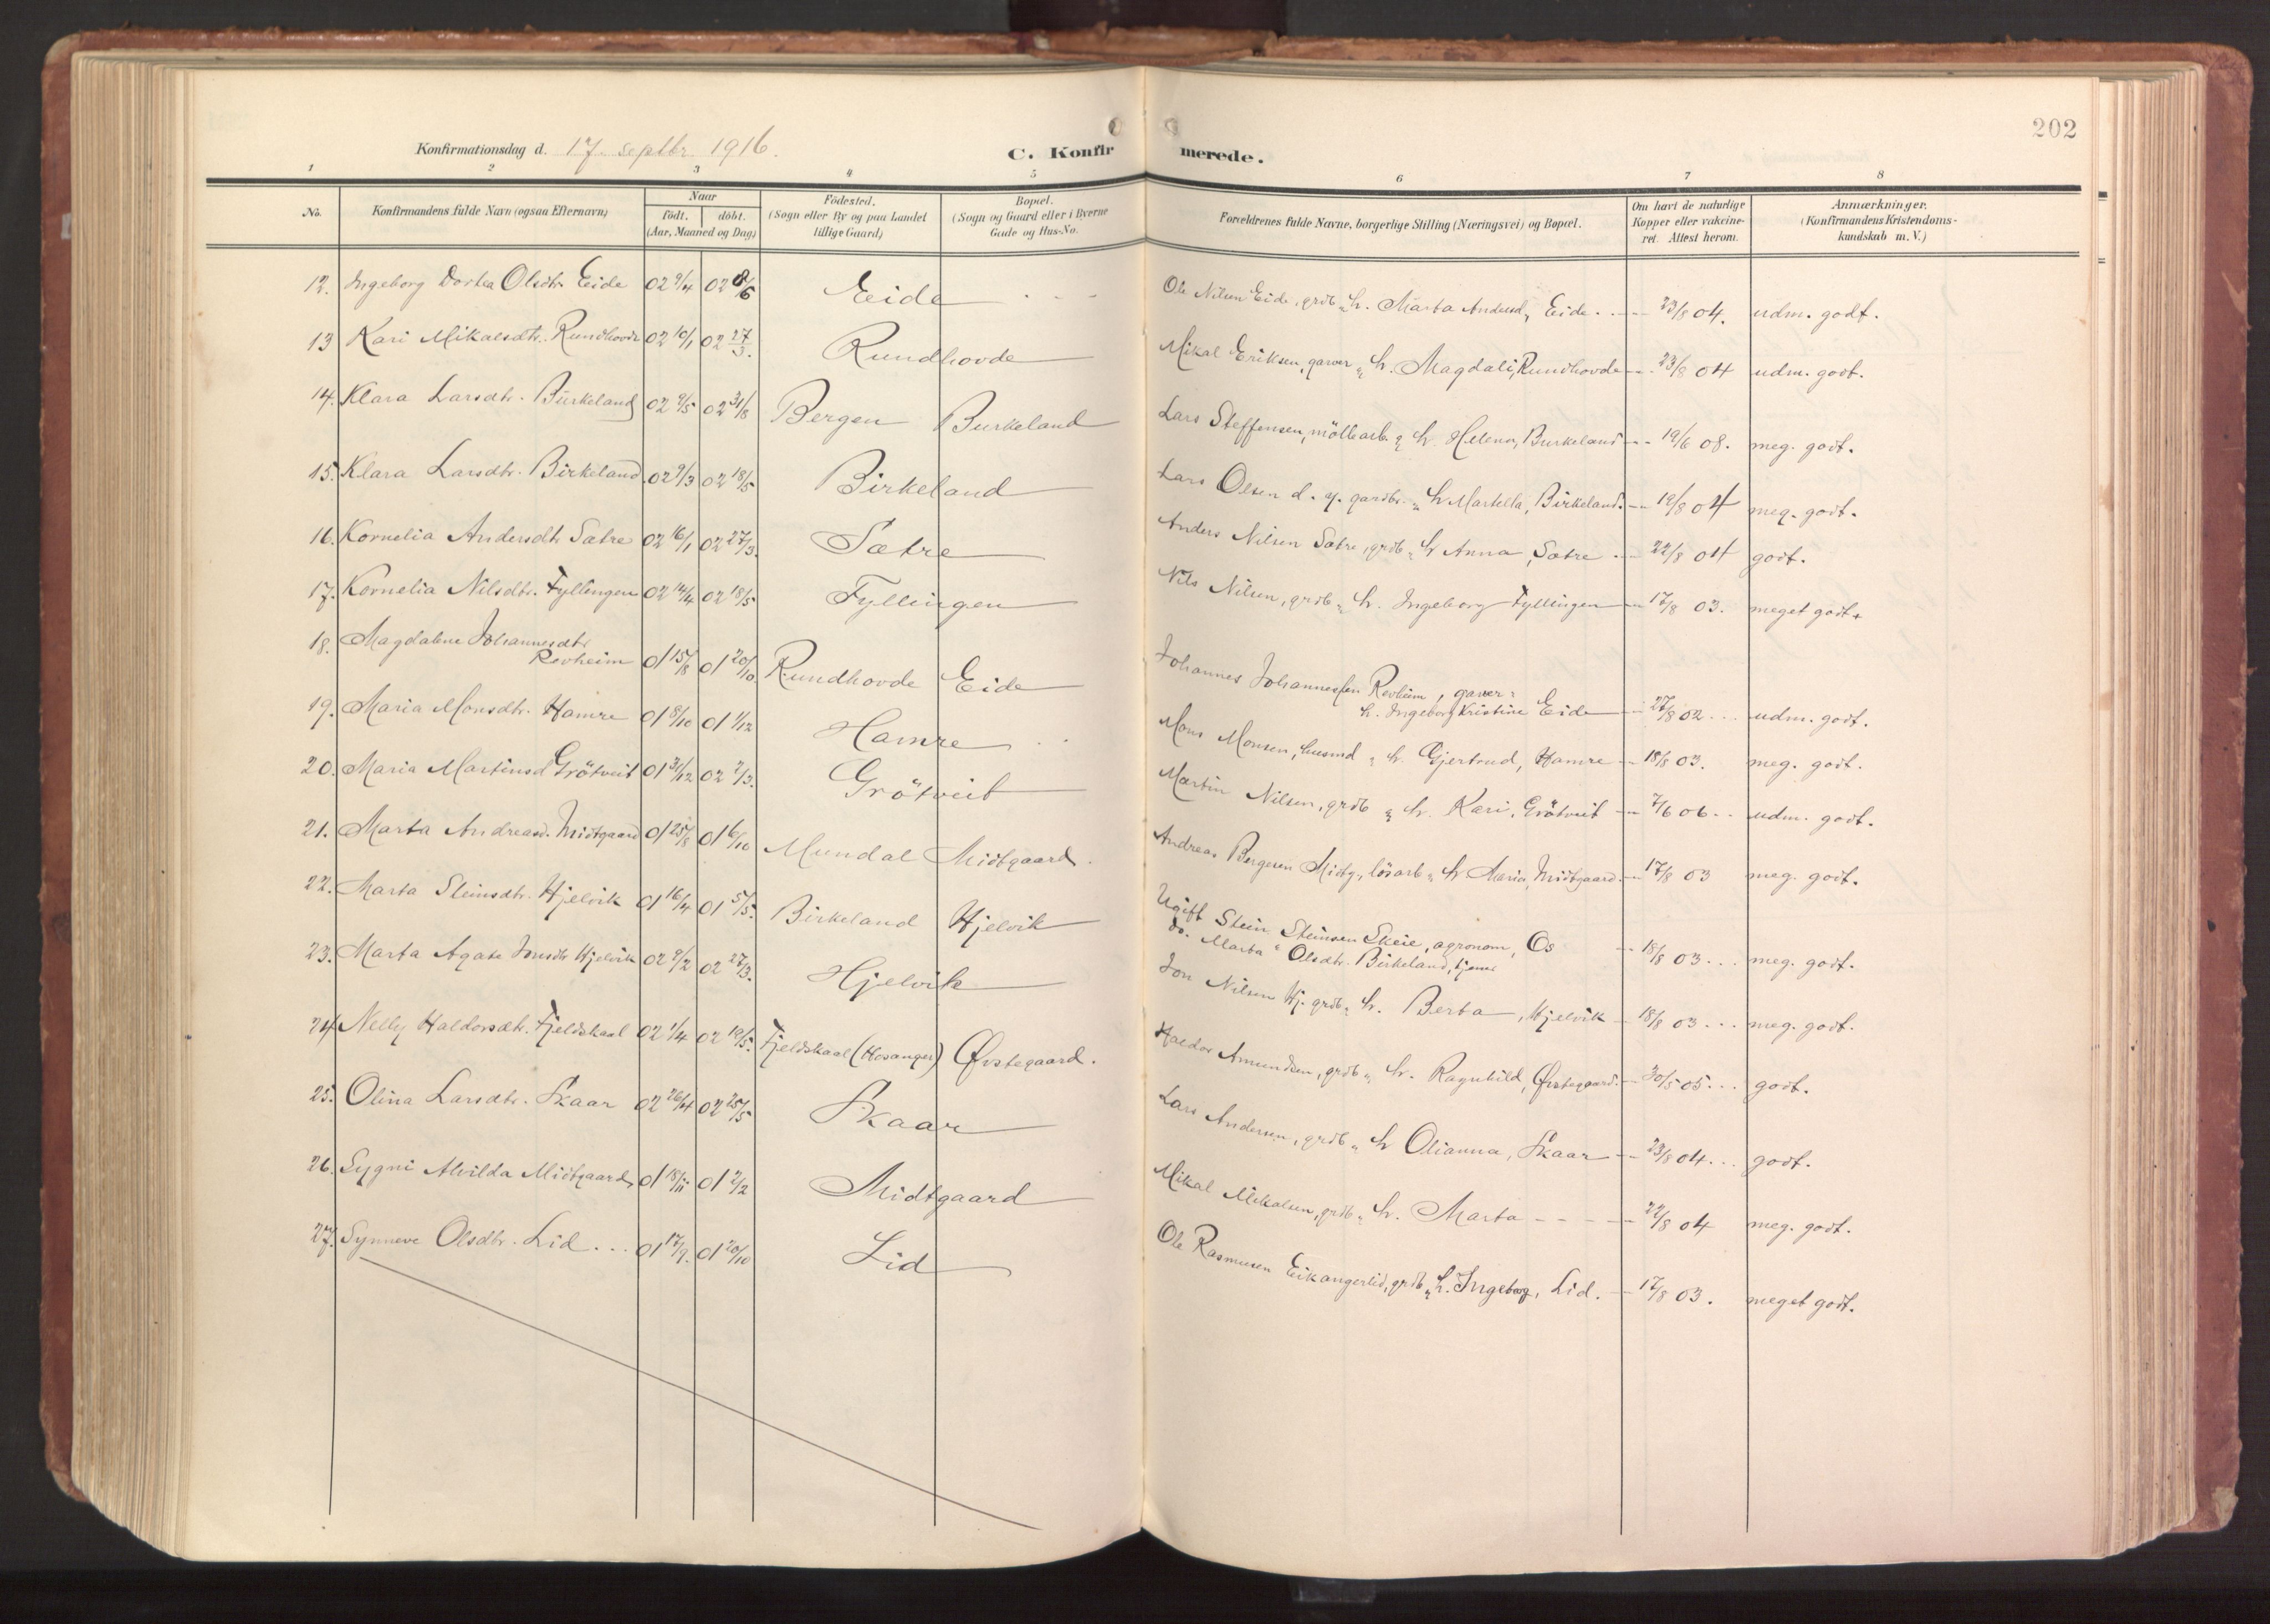 202
Konfirmationsdag d. 17. septbr. 1916.
C. Konfir merede.
1 2 3 4 5 6 7 8
No. Konfirmandens fulde Navn (ogsaa Efternavn) Naar födt. döbt. (Aar, Maaned og Dag) Födested. (Sogn eller By og paa Landet tillige Gaard) Bopæl. (Sogn og Gaard eller i Byerne Gade og Hus-No. Forældrenes fulde Navne, borgerlige Stilling (Næringsvei) og Bopæl. Om havt de naturlige Kopper eller vakcineret. Attest herom. Anmærkninger. (Konfirmandens Kristendomskundskab m. V.)
12. Ingeborg Dortea Olsdtr. Eide 02 9/4 02 8/6 Eide Ole Nilsen Eide, grdb. h. Marta Andersd, Eide. 23/8 04. udm. godt.
13 Kari Mikalsdtr. Rundhovde 02 10/1 02 27/3. Rundhovde Mikal Eriksen, garver h. Magdali, Rundhovde 23/8 04 udm. godt.
14. Klara Larsdtr. Burkeland 02 9/5 02 31/8 Bergen Burkeland Lars Steffensen, möllearb. h. Helena, Burkeland 19/6 08. meg. godt.
15. Klara Larsdtr. Birkeland 02 9/3 02 18/5 Birkeland Lars Olsen d. y. gardbr. h. Martella, Birkeland. 19/8 04 meg. godt.
16. Kornelia Andersdtr. Sætre 02 16/1 02 27/3. Sætre Anders Nilsen Sætre, grdb. h. Anna, Sætre 22/8 04 godt.
17. Kornelia Nilsdtr. Fyllingen 02 14/4 02 18/5 Fyllingen Nils Nilsen, grdb. h. Ingeborg Fyllingen 17/8 03. meget godt.
18. Magdalene Johannesdtr.
Revheim 01 15/8 01 20/10. Rundhovde Eide Johannes Johannessen Revheim, garver
h. Ingeborg Kristine Eide 27/8 02 udm. godt.
19. Maria Monsdtr. Hamre 01 8/10 01 1/12 Hamre Mons Monsen, husmd. h. Gjertrud, Hamre 18/8 03. meg. godt.
20. Maria Martinsd Grötveit 01 31/12 02 2/3. Grötveit Martin Nilsen, grdb. h. Kari, Grötveit 7/6 06 udm. godt.
21. Marta Andreasd. Midtgaard 01 25/8 01 6/10 Mundal Midtgaard. Andreas Bergesen Midtg., lösarb. h. Maria, Midtgaard 17/8 03 meg. godt.
22. Marta Steinsdtr. Hjelvik 01 16/4 01 5/5. Birkeland Hjelvik Ugift Stein Steinsen Skeie, agronom, Os
do. Marta Olsdtr. Birkeland, tjene 18/8 03 meg. godt.
23. Marta Agate Jonsdtr. Hjelvik 02 2/2 02 27/3. Hjelvik Jon Nilsen Hj. grdb. h. Berta, Hjelvik 18/8 03 meg. godt.
24. Nelly Haldorsdtr. Fjeldskaal 02 1/4 02 19/5. Fjeldskaal (Hosanger) Øvstegaard. Haldor Amundsen, grdb. h. Ragnhild, Øvstegaard. 30/5 05 godt.
25. Olina Larsdtr. Skaar 02 26/4 02 25/5 Skaar Lars Andersen, grdb. h. Olianna, Skaar 23/8 04 godt.
26. Sygni Alvilda Midtgaard 01 18/11 01 2/2 Midtgaard Mikal Mikalsen, grdb. h. Marta 22/8 04 meg. godt.
27. Synneve Olsdtr. Lid 01 17/9. 01 20/10 Lid Ole Rasmusen Eikangerlid, grdb. h. Ingeborg, Lid. 17/8 03. meget godt.